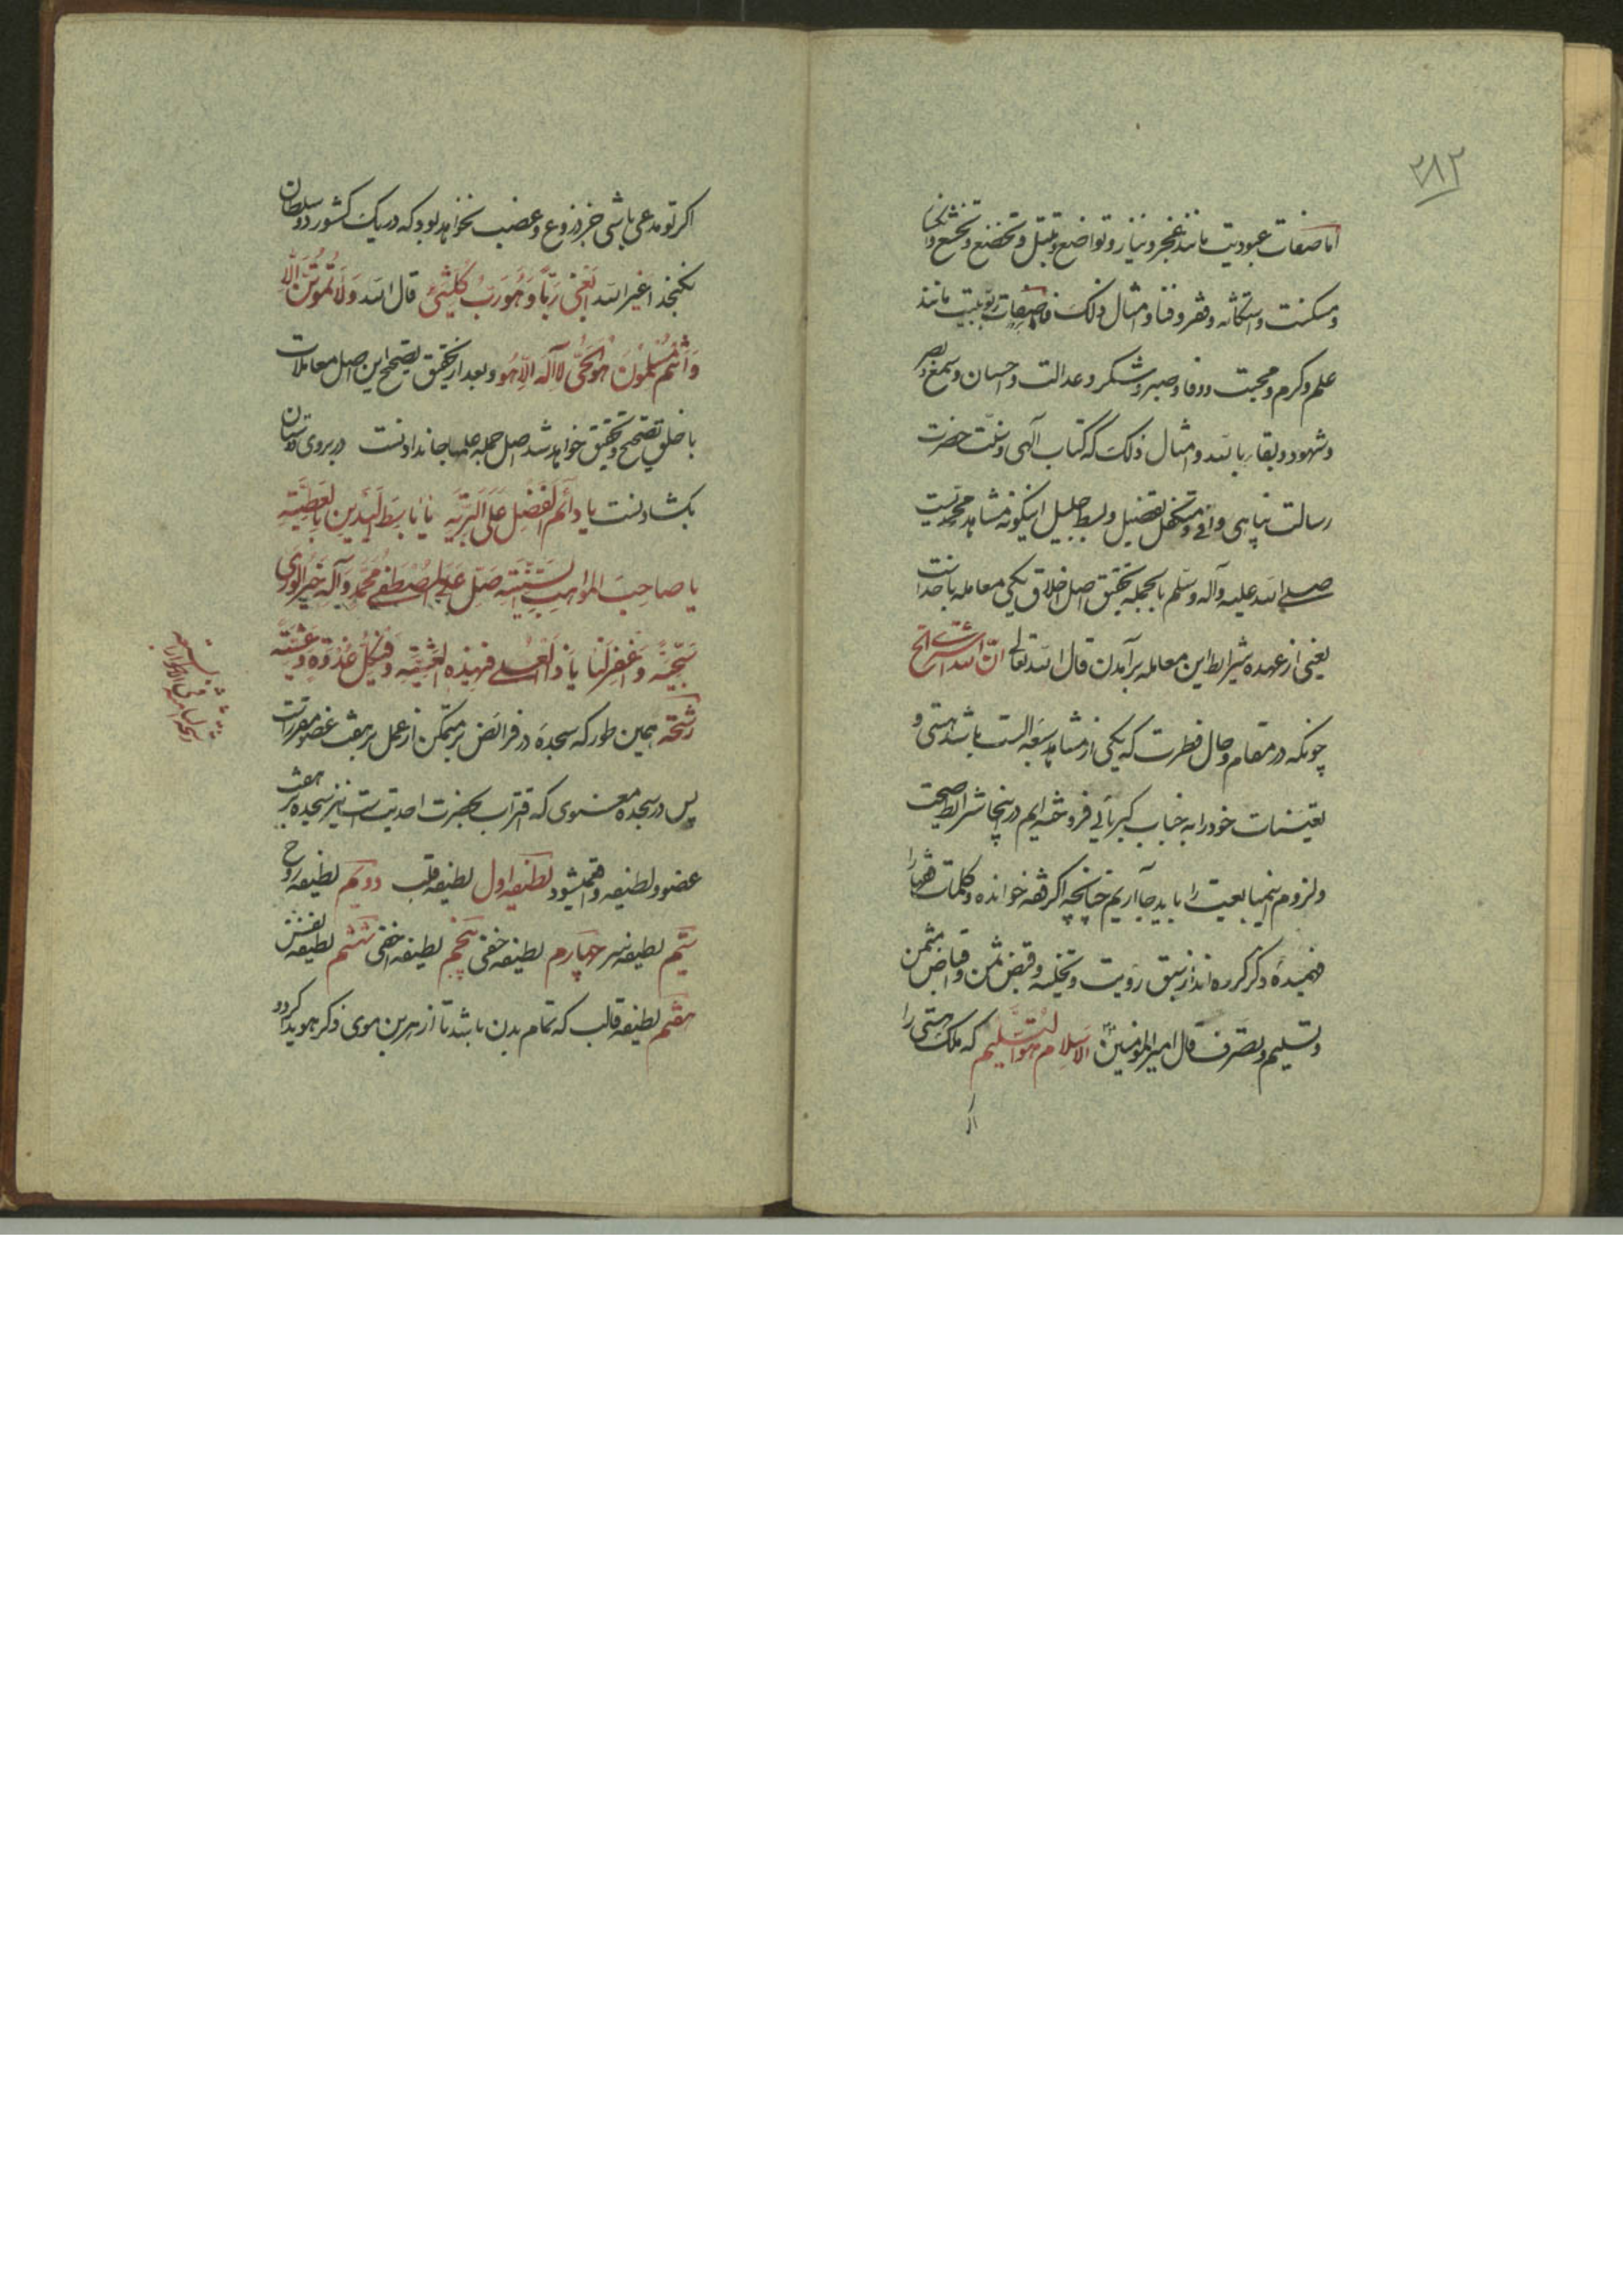 ۲۸۲
اما صفات عبودیت مانند عجز و نیاز و تواضع و تبتل و تخضع و تخشع
و مسکنت و استکانه و فقر و فنا و امثال ذلک صفات ربوبیت مانند
علم و کرم و محبت و وفا و صبر و شکر و عدالت و احسان و سمع و بصر
و شهود و بقاء بالله و امثال ذلک که کتاب الهی و سنت حضرت
رسالت پناهی وافی و متکفل تفصیل و بسط جلیل اینگونه مشاهد محمدیست
صلی الله علیه وآله وسلم بالجمله تحقیق اصل اخلاق یکی معامله با خداست
یعنی از عهده شرایط این معامله برآمدن قال الله تعالی ان الله اشتری الخ
چونکه در مقام و حال فطرت که یکی از مشاهد الست باشد هستی و
تعینات خود را به جناب کبریائی فروخته ایم در اینجا شرایط صحت
و لزوم این مبایعت را باید بجا آریم چنانچه اکر فقه خوانده و کلمات فقها را
فهمیده ذکر کرده اند از سبق رؤیت و تخلیه و قبض ثمن و اقباض مثمن
و تسلیم و تصرف قال امیرالمؤمنین الاسلام هو التسلیم که ملک هستی را
اکر تو مدعی باشی جز نزوع و غضب نخواهد بود که در یک کشور دو سلطان
نکنجد اغیر الله ابغی ربا و هو رب کلشیئ قال الله ولا تموتن الا
وانتم مسلمون هو الحی لا اله الا هو و بعد از تحقیق تصحیح این اصل معاملات
با خلق تصحیح و تحقیق خواهد شد اصل جمله علمها جاندادنست در بروی دوستان
بکشادنست یا دائم الفضل علی البریه یا باسط الیدین بالعطیه
یا صاحب المواهب السنیه صل علی المصطفی محمد وآله خیر الوری
سجیه واغفر لنا یا ذا العلی فی هذه العشیه و فی کل غدوة وعشیه
رشحه همین طور که سجده در فرائض بر متمکن از عمل بر هفت عضو مقررات
پس در سجده معنوی که اقتراب بحضرت احدیت است نیز سجده بر هفت
عضو و لطیفه واقع میشود لطیفه اول لطیفه قلب دویم لطیفه روح
سیم لطیفه سر چهارم لطیفه خفی پنجم لطیفه اخفی ششم لطیفه نفس
هفتم لطیفه قالب که تمام بدن باشد تا از هر بن موی ذکر هویدا کردد